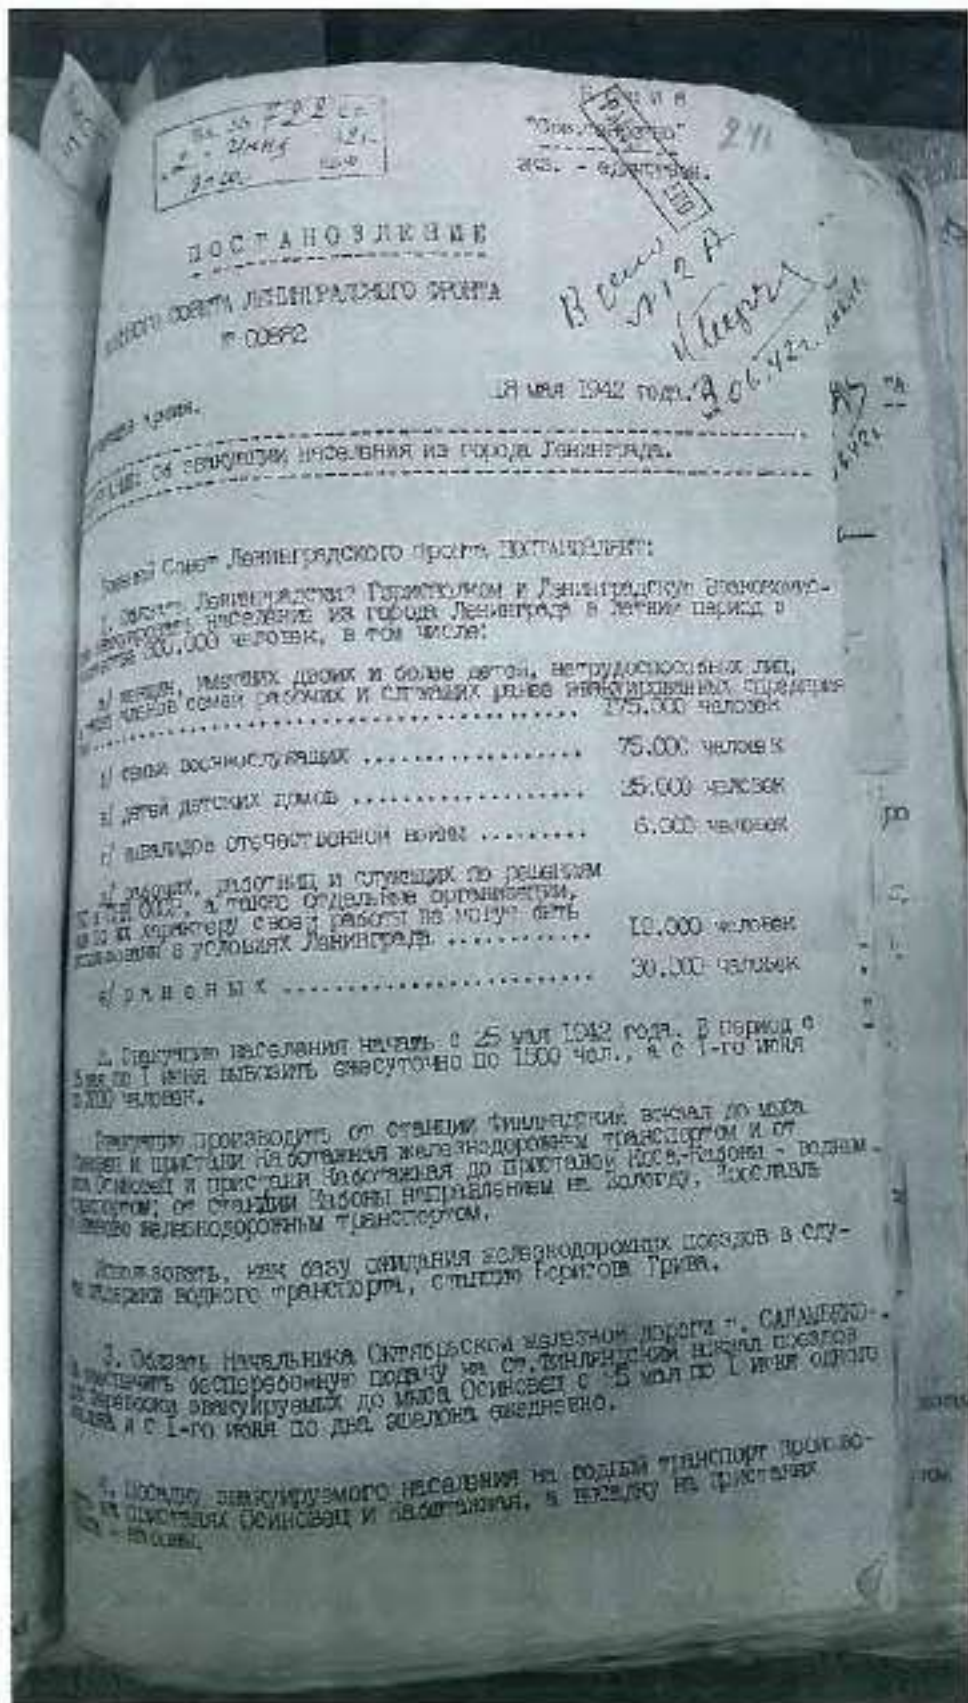 722
Июня
Копия
"Сов.секретно"
экз. - единствен.
РАССЕКРЕЧЕНО
241
ПОСТАНОВЛЕНИЕ
СОВЕТА ЛЕНИНГРАДСКОГО ФРОНТА
№ 00882
18 мая 1942 года.
армия.
Об эвакуации населения из города Ленинграда.
Военный Совет Ленинградского фронта ПОСТАНОВЛЯЕТ:
1. Обязать Ленинградский Горисполком и Ленинградскую
население из города Ленинграда в летний период в
300.000 человек, в том числе:
а/ женщин, имеющих двоих и более детей, нетрудоспособных лиц,
членов семей рабочих и служащих ранее эвакуированных
175.000 человек
б/ семьи военнослужащих .................. 75.000 человек
в/ детей детских домов ................... 35.000 человек
г/ инвалидов отечественной войны ......... 6.000 человек
д/ рабочих, работниц и служащих по решениям
а также отдельные организации,
характеру своей работы не могут быть
в условиях Ленинграда ............ 10.000 человек
е/ р а н е н ы х ......................... 30.000 человек
2. Эвакуацию населения начать с 25 мая 1942 года. В период с
по 1 июня вывозить ежесуточно по 1500 чел., а с 1-го июня
человек.
Эвакуацию производить от станции Финляндский вокзал до мыса
и пристани Каботажная железнодорожным транспортом и от
Осиновец и пристани Каботажная до пристаней Коса,-Кабоны - водным
от станции Кабоны направлением на Вологду, Ярославль
железнодорожным транспортом.
Использовать, как базу ожидания железнодорожных поездов в слу-
водного транспорта, станцию Борисова Грива.
3. Обязать Начальника Октябрьской железной дороги
бесперебойную подачу на ст. Финляндский вокзал поездов
перевозки эвакуируемых до мыса Осиновец с 25 мая по 1 июня одного
и с 1-го июня по два эшелона ежедневно.
4. Посадку эвакуируемого населения на водный транспорт произво-
на пристанях Осиновец и Каботажная, а высадку на пристанях